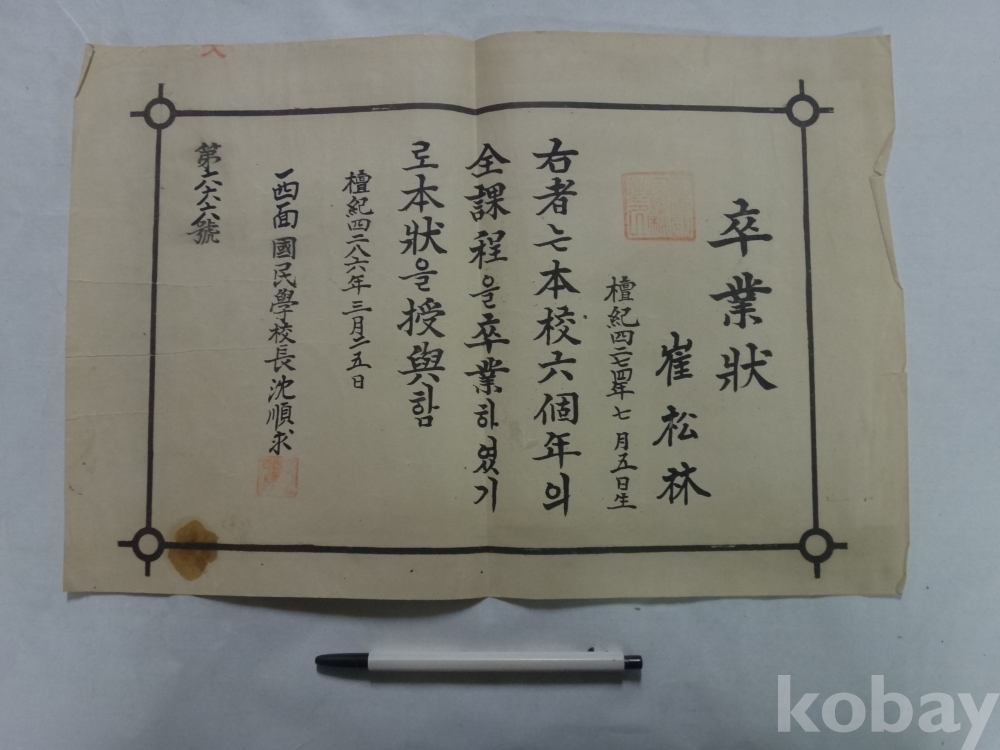 卒業狀
崔松林
檀紀四二七四年七月五日生
右者는本校六個年의
全課程을卒業하였기
로本狀을授與함
檀紀四二八六年三月二五日
西面國民學校長沈順求
第六六六號
kobay